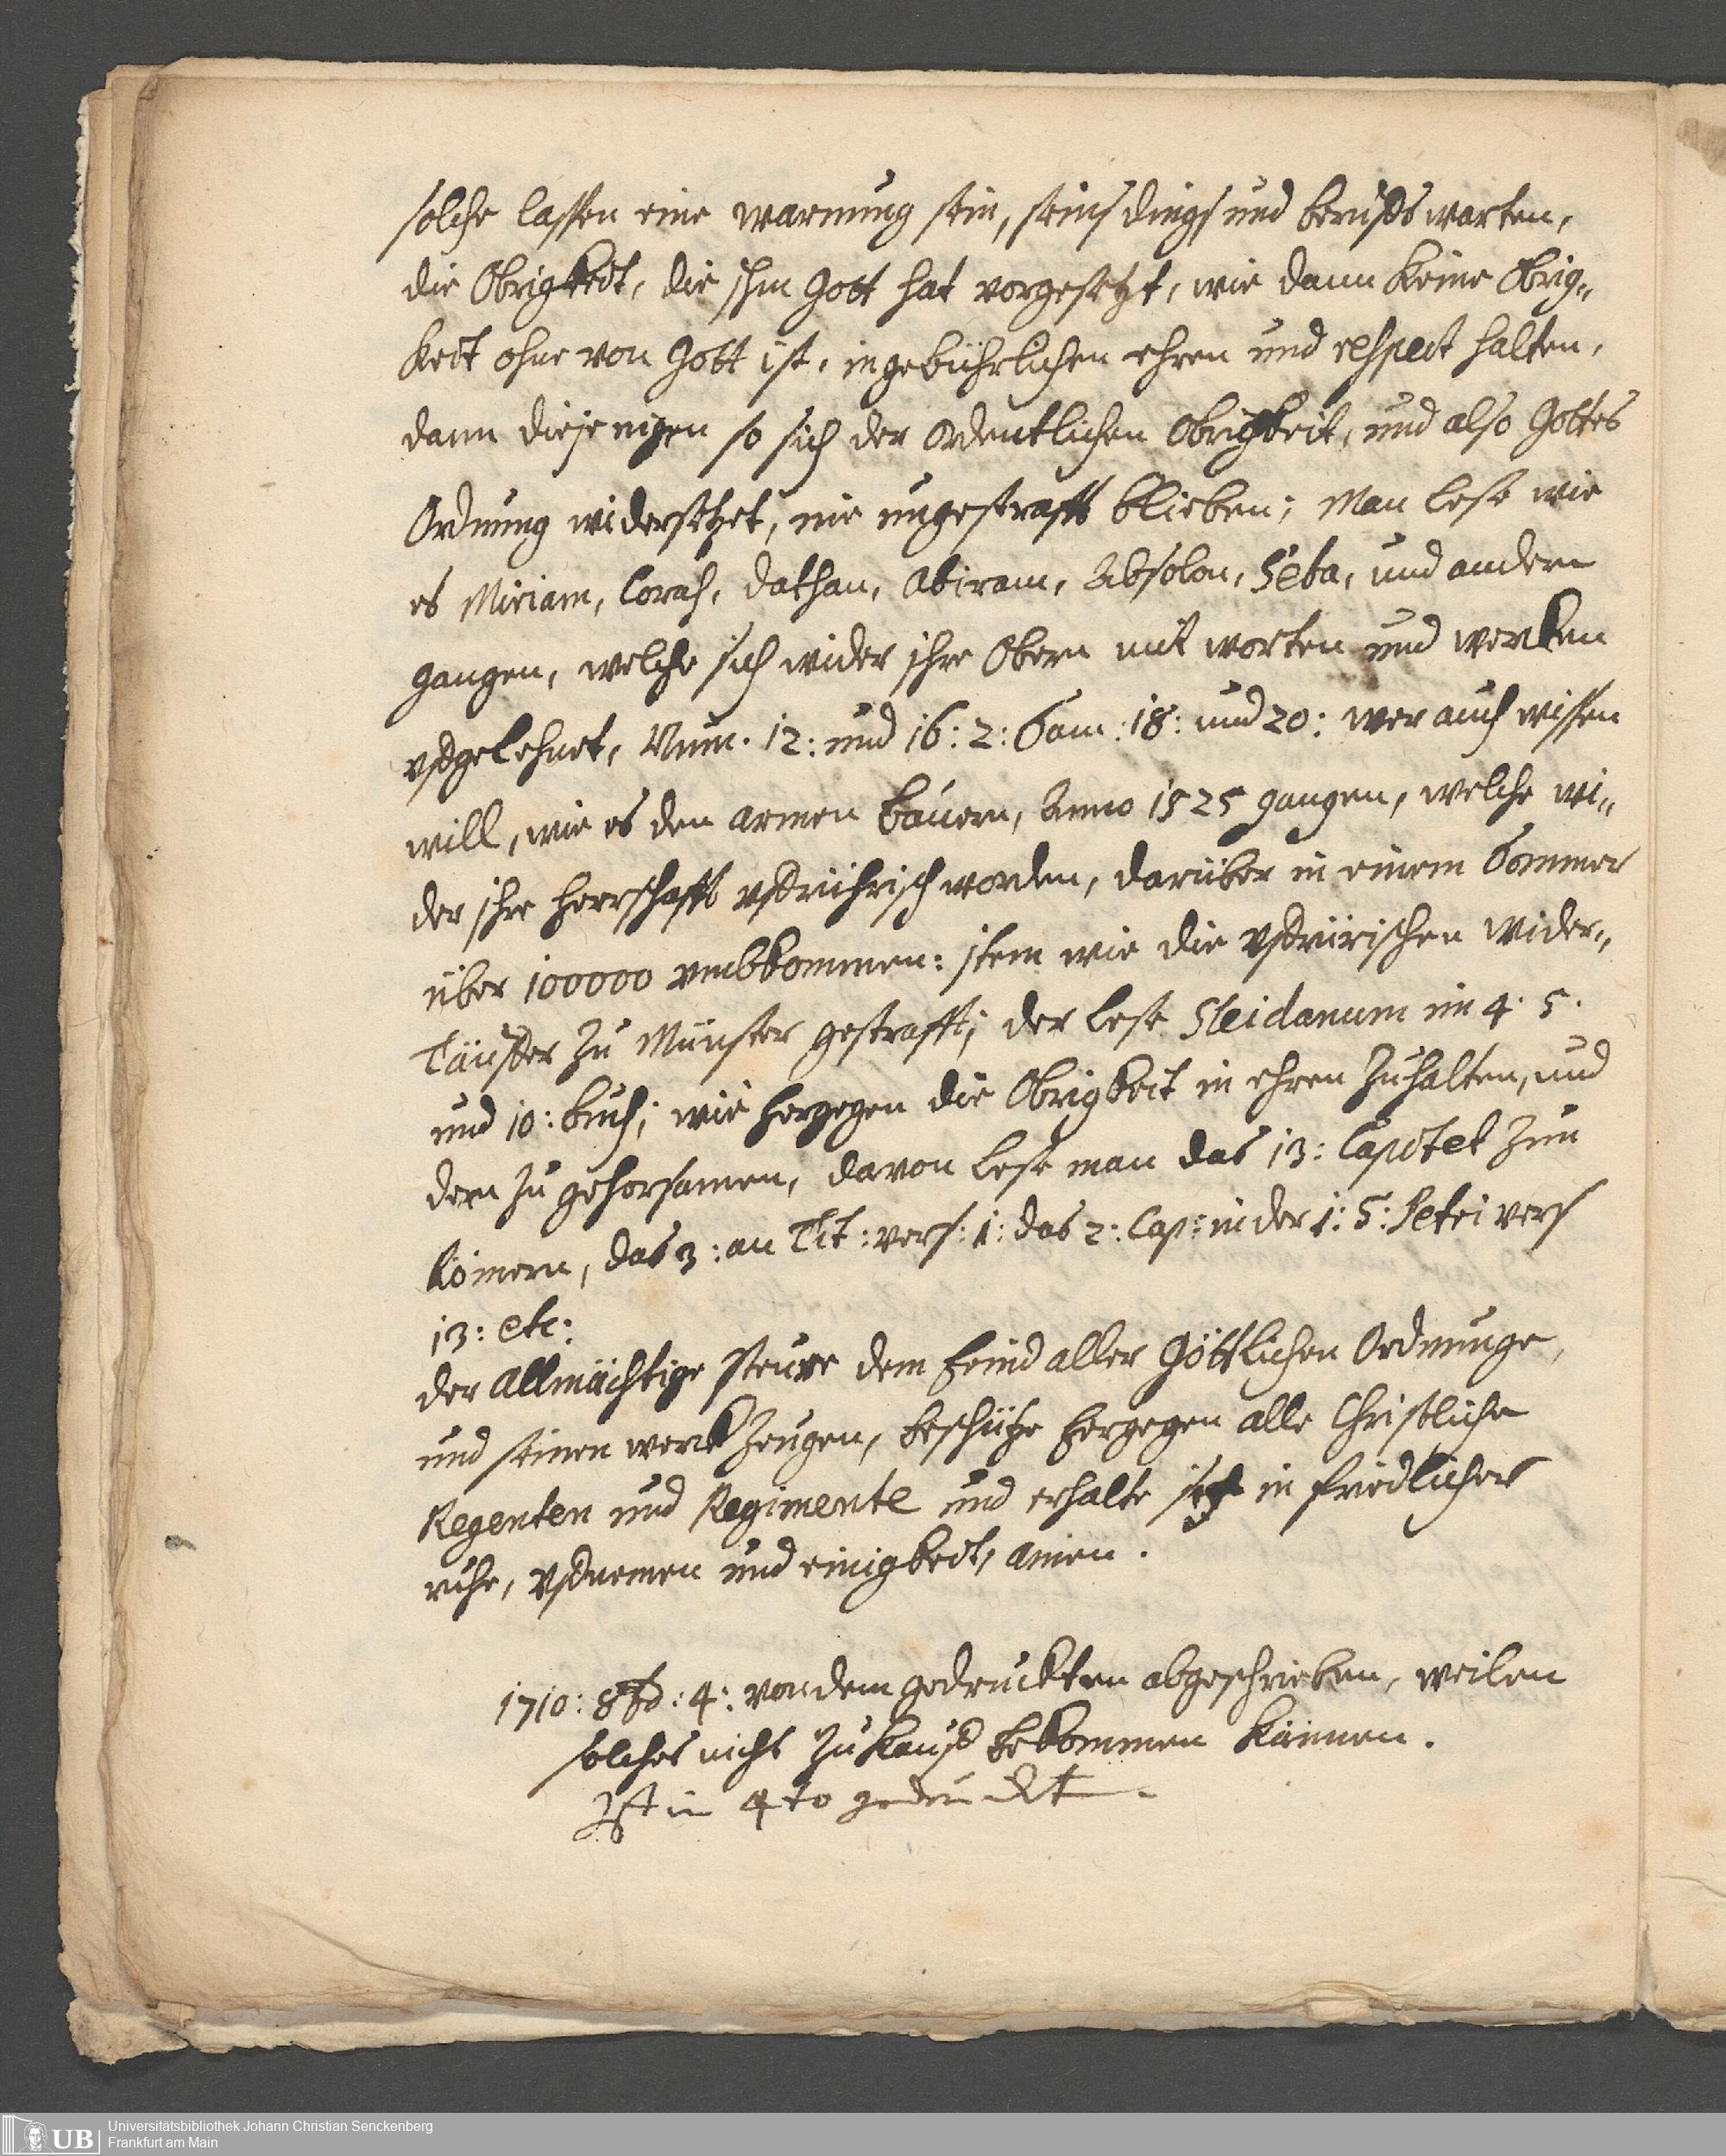 solche lassen eine warnung sein, seins dings und beruffs warten,
die Obrigkeit, die ihm Gott hat vorgesetzt, wie dann keine Obrig„
keit ohne von Gott ist, in gebührlichen ehren und respect halten,
dann diejenigen so sich der Ordentlichen Obrigkeit, und also Gottes
Ordnung widersetzet, nie ungestrafft blieben; Man lese wie
es Miriam, Corah, Dathan, Abiram, Absolon, Seba, und andern
gangen, welche sich wider ihre Obern mit worten und wercken
uffgelehnet, Num. 12: und 16: 2: Sam: 18: und 20: wer auch wissen
will, wie es den armen bauern, Anno 1525 gangen, welche wi„
der ihre Herrschafft uffrührisch worden, darüber in einem Sommer
über 100000 umbkommen: item wie die uffrürischen Wider„
Täuffer zu Münster gestrafft; der lese Sleidanum im 4. 5.
und 10: buch; wie hergegen die Obrigkeit in ehren zuhalten, und
deren zu gehorsamen, davon lese man das 13: Capitel zun
Römern, das 3: an Tit: vers: 1: das 2: Cap: in der 1: S: Petri vers
13: etc:
der Allmächtige steure dem feind aller Göttlichen Ordnunge,
und seinen werckzeugen, beschütze hergegen alle Christliche
Regenten und Regimente und erhalte sie in friedlicher
ruhe, uffnemen und einigkeit, amen.
1710: 8br: 4: von dem gedruckten abgeschrieben, weilen
solches nicht zu kauff bekommen können.
Ist in 4to gedruckt.
UB Universitätsbibliothek Johann Christian Senckenberg
Frankfurt am Main